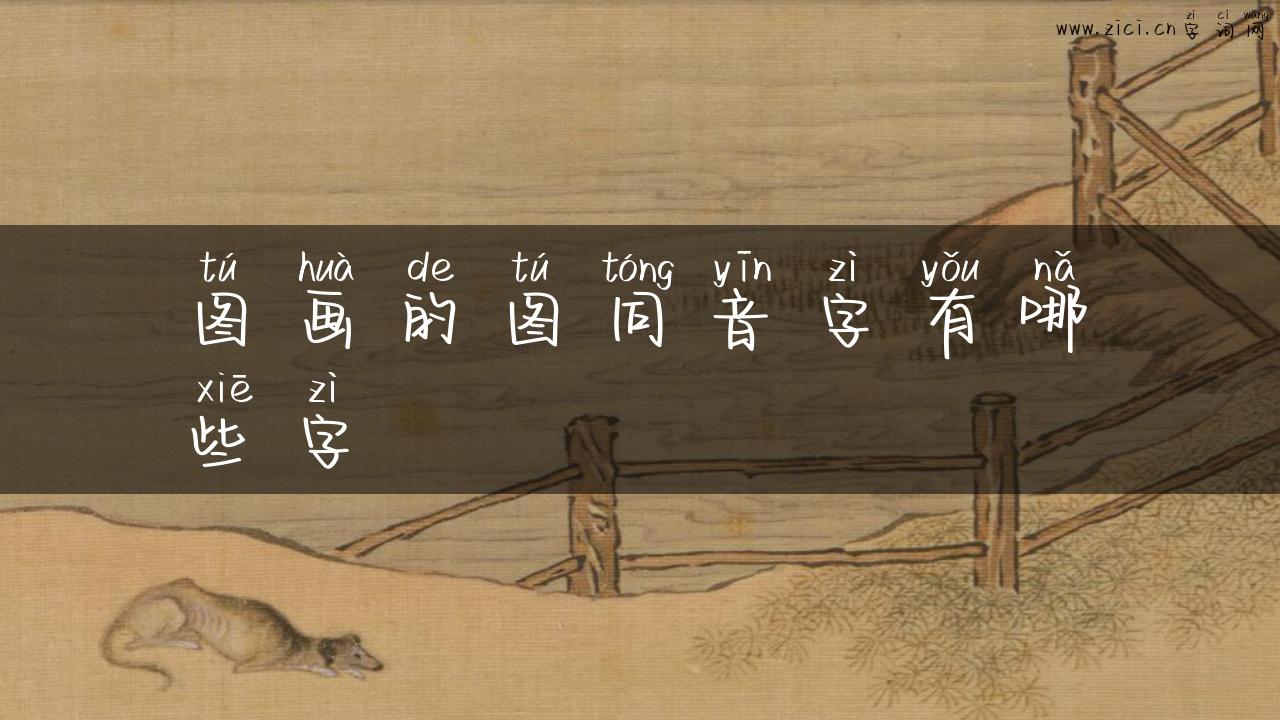 zì cí wǎng
www.zici.cn字词网
tú huà de tú tóng yīn zì yǒu nǎ
图画的图同音字有哪
xiē zì
些字